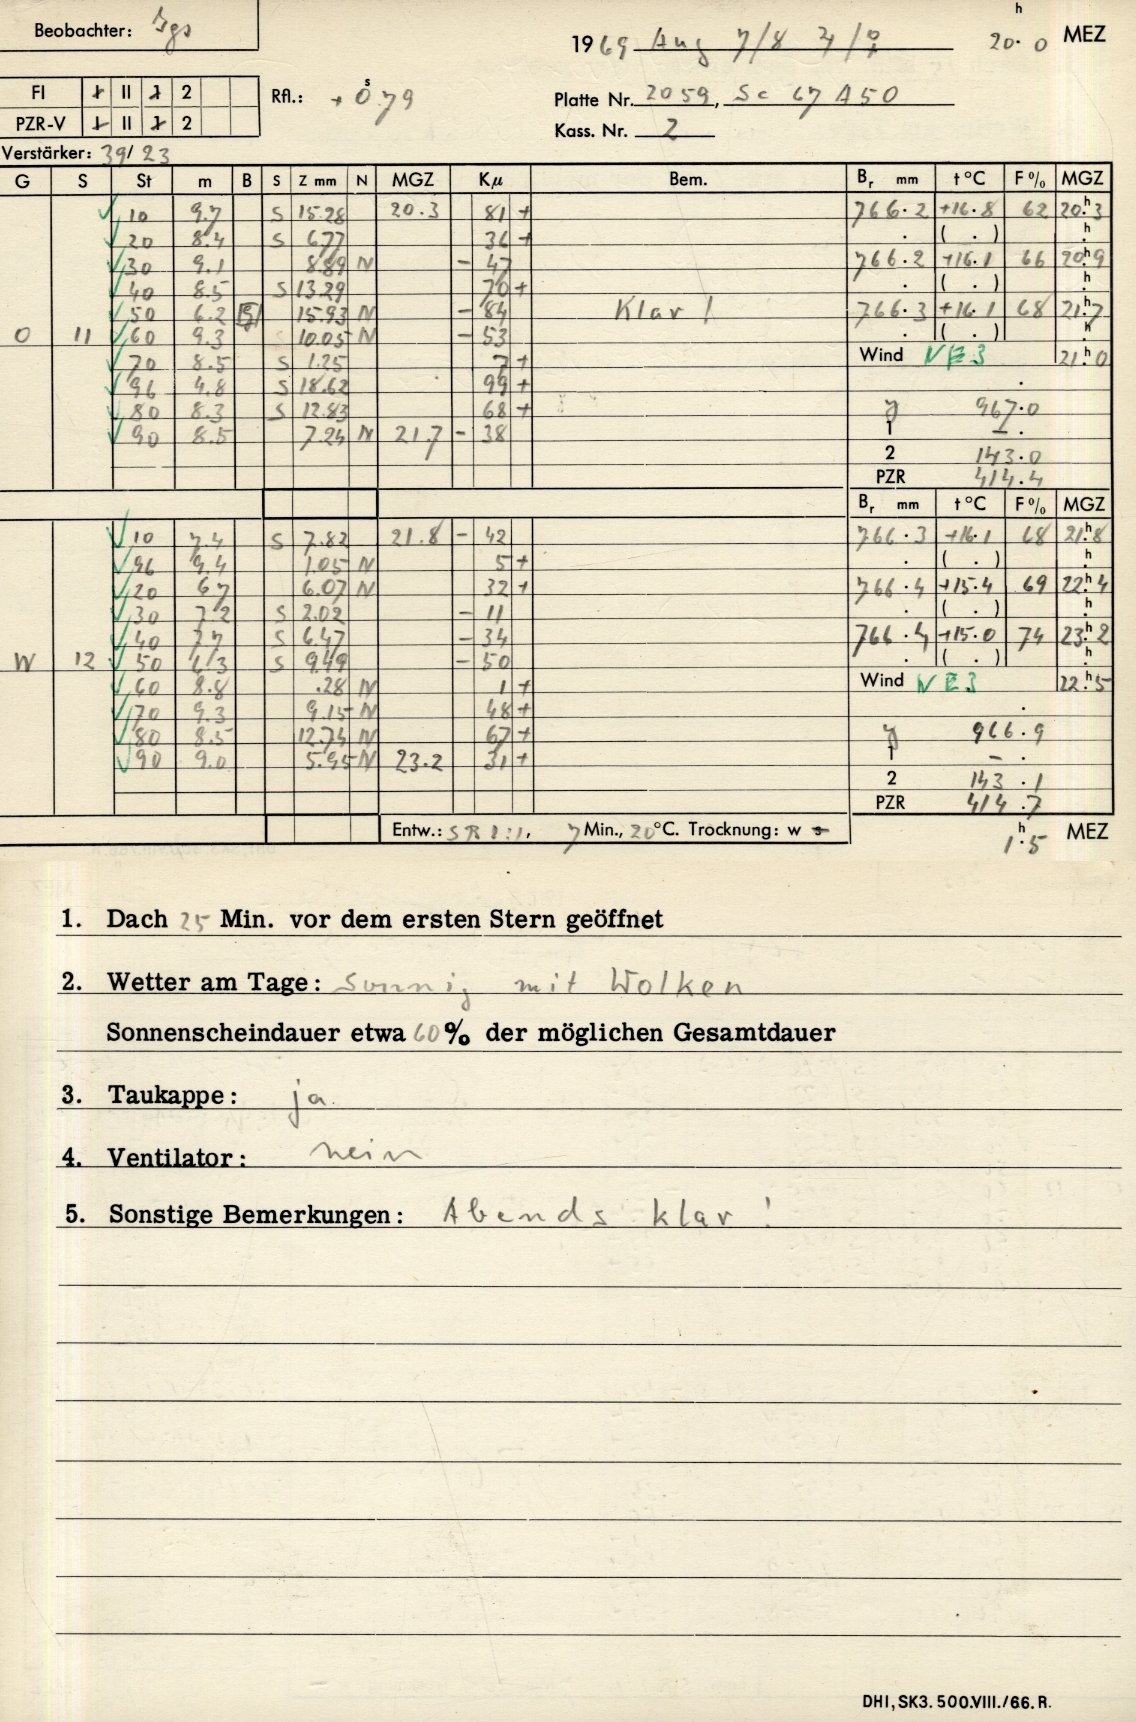 Beobachter: Jgs
h
1969 Aug 7/8 ♃/♀ 20.0 MEZ
FI I II 1 2
Rfl.: +0.79 s
Platte Nr. 2059, Sc 67 A50
PZR-V I II 1 2
Kass. Nr. 2
Verstärker: 39/23
G S St m B S Z mm N MGZ Kμ Bem. Br mm t°C F% MGZ
10 9.7 S 15.28 20.3 81 + 766.2 +16.8 62 20.3 h
20 8.4 S 6.77 36 + . ( . ) . h
30 9.1 8.89 N - 47 766.2 +16.1 66 20.9 h
40 8.5 S 13.29 70 + . ( . ) . h
50 6.2 15.93 N - 84 Klar! 766.3 +16.1 68 21.7 h
O 11 60 9.3 10.05 N - 53 . ( . ) . h
70 8.5 S 1.25 7 + Wind NE 3 21.0 h
96 4.8 S 18.62 99 +
80 8.3 S 12.83 68 + y 967.0
90 8.5 7.24 N 21.7 - 38 1 - .
2 143.0
PZR 414.4
Br mm t°C F% MGZ
10 7.4 S 7.82 21.8 - 42 766.3 +16.1 68 21.8 h
96 9.4 1.05 N 5 + . ( . ) . h
20 6.7 6.07 N 32 + 766.4 +15.4 69 22.4 h
30 7.2 S 2.02 - 11 . ( . ) . h
40 7.7 S 6.47 - 34 766.4 +15.0 74 23.2 h
W 12 50 6.3 S 9.49 - 50 . ( . ) . h
60 8.8 .28 N 1 + Wind NE 3 22.5 h
70 9.3 9.15 N 48 +
80 8.5 12.74 N 67 + y 966.9
90 9.0 5.95 N 23.2 31 + 1 - .
2 143.1
PZR 414.7
Entw.: SR 1:1, 7 Min., 20°C. Trocknung: w s
1.5 h MEZ
1. Dach 25 Min. vor dem ersten Stern geöffnet
2. Wetter am Tage: Sonnig mit Wolken
Sonnenscheindauer etwa 60% der möglichen Gesamtdauer
3. Taukappe: ja
4. Ventilator: nein
5. Sonstige Bemerkungen: Abends klar!
DHI, SK3. 500.VIII./66. R.